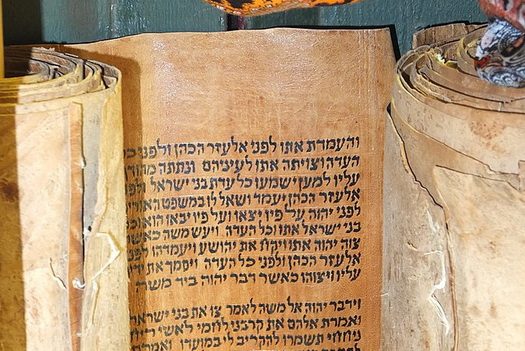 והעמדת אתו לפני אלעזר הכהן ולפני
העדה וצויתה אתו לעיניהם ונתתה
עליו למען ישמעו כל עדת בני ישראל
אלעזר הכהן יעמד ושאל לו במשפט
לפני יהוה על פיו יצאו ועל פיו יבאו הוא
בני ישראל אתו וכל העדה ויעש משה
צוה יהוה אתו ויקח את יהושע ויעמדהו
אלעזר הכהן ולפני כל העדה ויסמך את
עליו ויצוהו כאשר דבר יהוה ביד משה
וידבר יהוה אל משה לאמר צו את בני
ואמרת אלהם את קרבני לחמי לאשי
ניחחי תשמרו להקריב לי במועדו